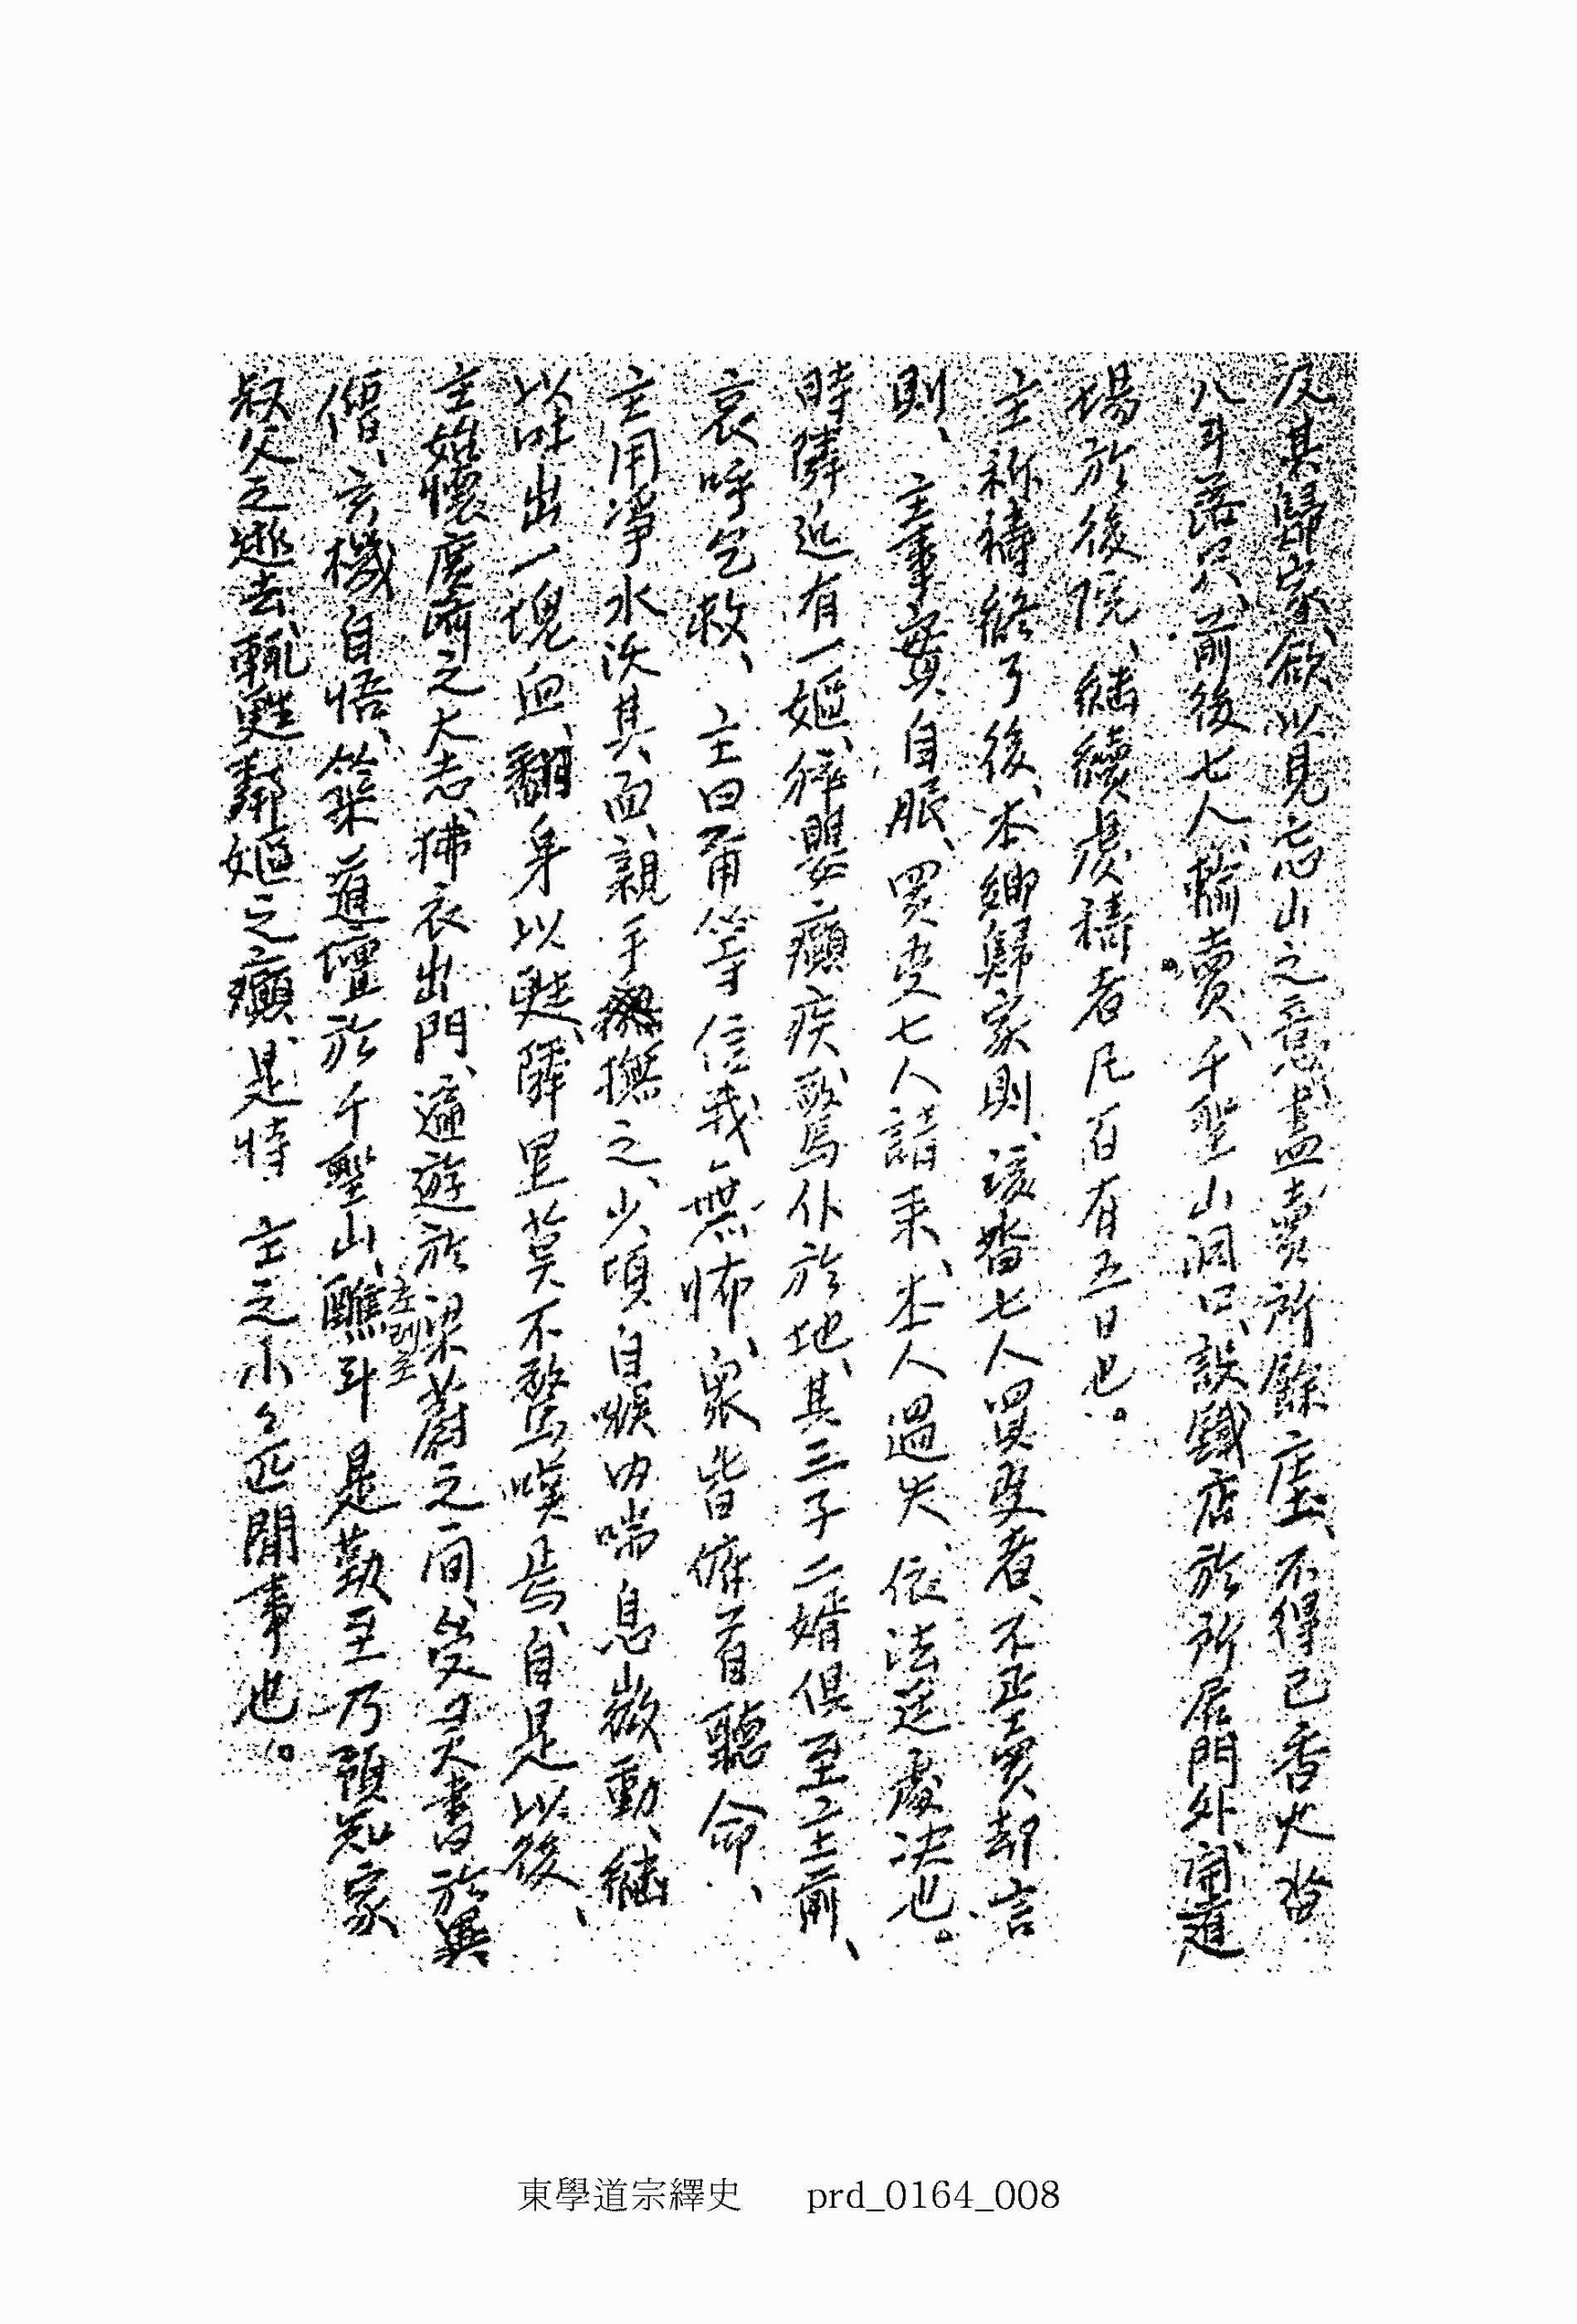 及其歸家、欲以見志山之意、盡賣所餘庄土、不得已畓火畓
八斗落只、前後七人、輪賣、千聖山洞口、設鐵店於所居門外、開道
場於後院、繼續虔禱者凡百有五日也。
主祈禱終了後、本鄕歸家則、該畓七人買叓者、不正賣却言
則、主事實自服、買叓七人請来、本人過失、依法送處決也。
時隣近有一嫗、猝嬰癲疾、驚仆於地、其三子二婿俱至主前、
哀呼乞救、主曰爾等信我無怖、衆皆俯首聽命、
主用淨水沃其面、親手撫之、少頃自喉中喘息微動、繼
以吐出一塊血、翻身以甦、隣里莫不驚嘆焉、自是以後、
主始懷廣濟之大志、拂衣出門、遍遊於梁蔚之間、受灵書於異
僧、玄機自悟、築道壇於千聖山、醮斗是勤至乃預知家
叔父之逝去、輒甦鄰嫗之癲、是特 主之小々匹聞事也。